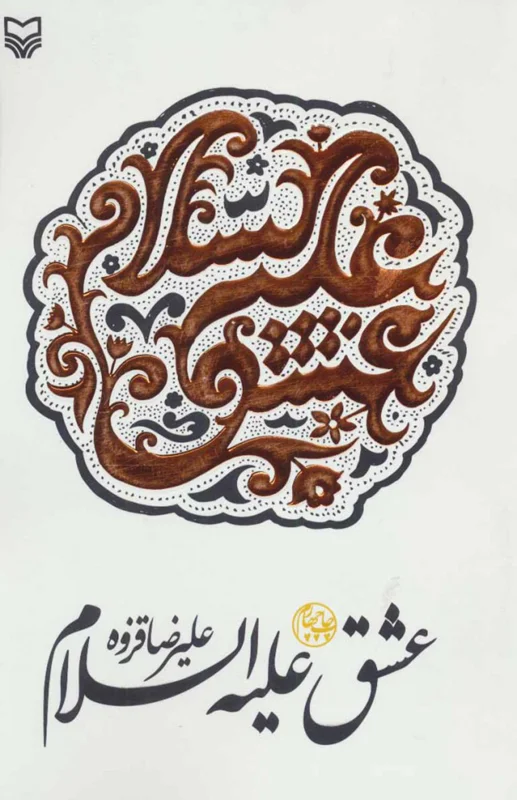 عشق علیه السلام
چاپ چهارم
علیرضا قزوه
عشق علیه السلام